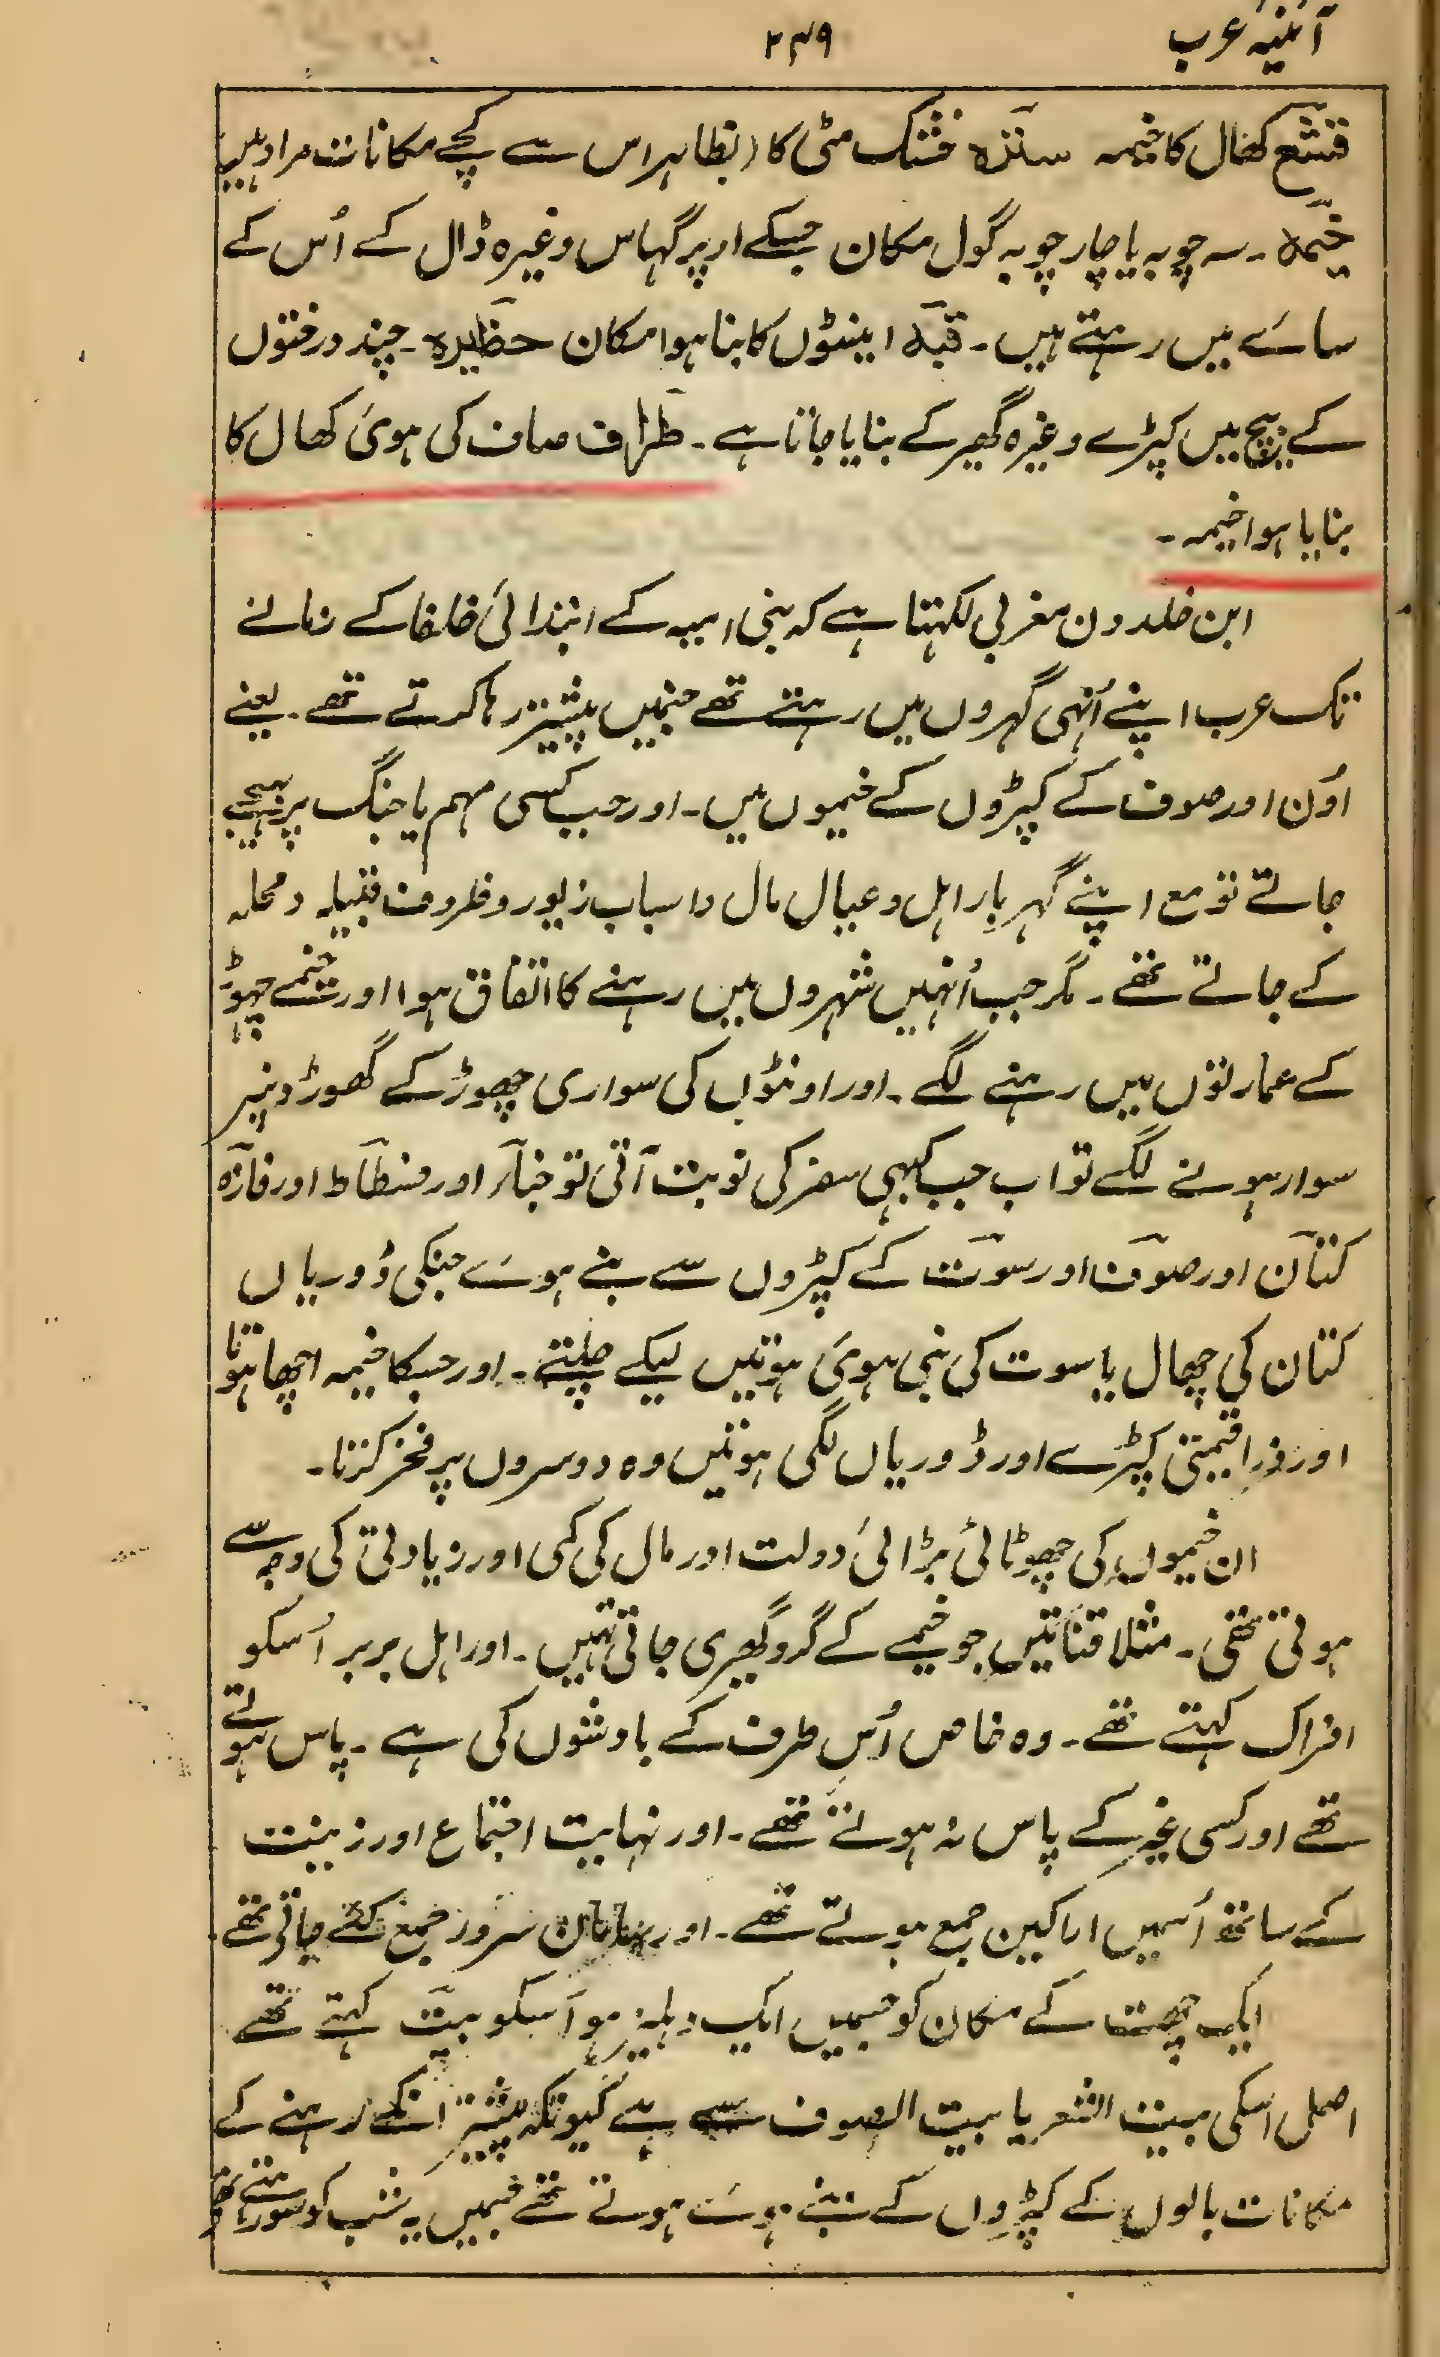 آئینہ عرب ۲۴۹
قشع کھال کا خیمہ سترہ خشک مٹی کا (بظاہر اس سے کچے مکانات مراد ہیں
خیمہ ۔ سہ چوبہ یا چار چوبہ گول مکان جسکے اوپر گہاس وغیرہ ڈال کے اُس کے
سائے میں رہتے ہیں ۔ قبہ اینٹوں کا بنا ہوا مکان حظیرہ ۔ چند درختوں
کے بیچ میں کپڑے وغیرہ گھیر کے بنایا جاتا ہے ۔ طراف صاف کی ہوئی کھال کا
بنایا ہوا خیمہ ۔
ابن خلدون مغربی لکہتا ہے کہ بنی امیہ کے ابتدائی خلفا کے زمانے
تک عرب اپنے اُنہی گہروں میں رہتے تھے جنمیں پیشتر رہا کرتے تھے ۔ یعنے
اُون اور صوف کے کپڑوں کے خیموں میں ۔ اور جب کسی مہم یا جنگ پر بھیجے
جاتے تو مع اپنے گہر بار اہل و عیال مال و اسباب زیور و ظروف قبیلہ و محلہ
کے جاتے تھے ۔ مگر جب اُنہیں شہروں میں رہنے کا اتفاق ہوا اور خیمے چہوڑ
کے عمارتوں میں رہنے لگے ۔ اور اونٹوں کی سواری چھوڑ کے گھوڑونپر
سوار ہونے لگے تو اب جب کبہی سفر کی نوبت آتی تو خبآء اور فسطاط اور فازہ
کتان اور صوف اور سوت کے کپڑوں سے بنے ہوئے جنکی ڈوریاں
کتان کی چھال یا سوت کی بنی ہوئی ہوتیں لیکے چلتے ۔ اور جسکا خیمہ اچھا ہوتا
اور ذرا قیمتی کپڑے اور ڈوریاں لگی ہوتیں وہ دوسروں پر فخر کرتا ۔
ان خیموں کی چھوٹائی بڑائی دولت اور مال کی کمی اور زیادتی کی وجہ سے
ہوتی تھی ۔ مثلا قناتیں جو خیمے کے گرد گھیری جاتی تہیں ۔ اور اہل بربر اُسکو
افراک کہتے تھے ۔ وہ خاص اُس طرف کے بادشوں کی ہے ۔ پاس ہوتے
تھے اور کسی غیر کے پاس نہ ہوتے تھے ۔ اور نہایت اجتماع اور زینت
کے ساتھ اُسمیں اراکین جمع ہوتے تھے ۔ اور سامان سرور جمع کئے جاتے تھے ۔
ایک چھت کے مکان کو جسمیں ایک دہلیز ہو اُسکو بیت کہتے تھے
اصل اسکی بیت الشعر یا بیت الصوف سے ہے کیونکہ پیشتر انکے رہنے کے
مکانات بالوں کے کپڑوں کے بنے ہوئے ہوتے تھے جنمیں یہ شب کو سورہتے تھے